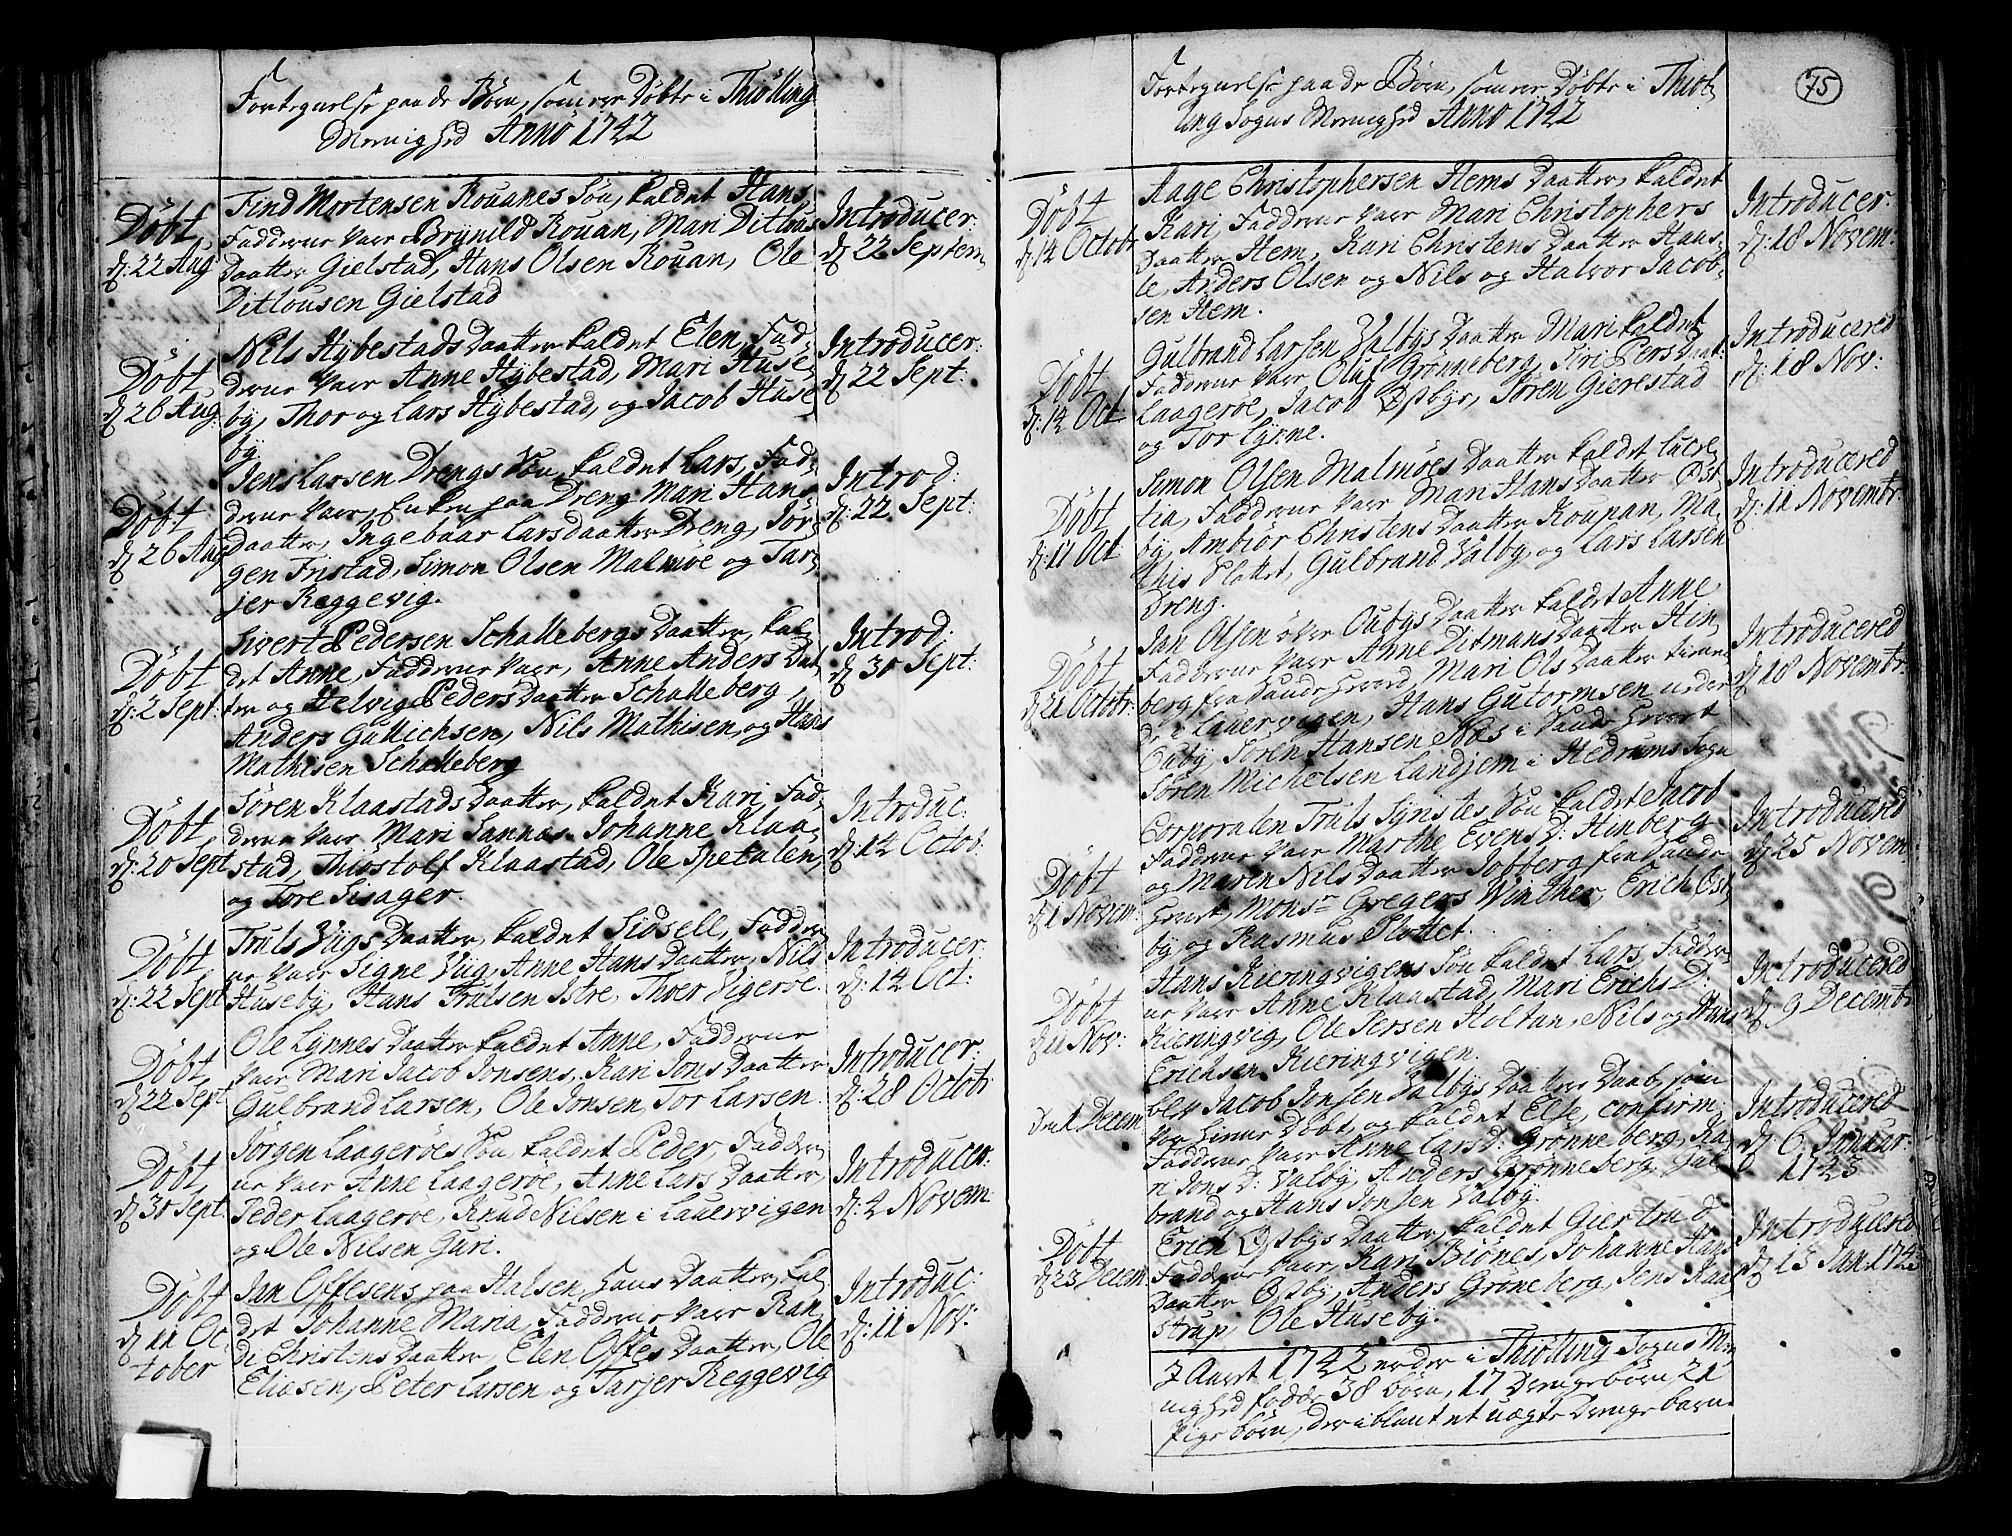 Fortegnelse paa de Børn, som ere Døbte i Thiölling
Menighed Anno 1742
Døbt
d: 22 Aug
Find Mortensen Rouanes Søn, kaldet Hans,
Fadderne vare Brynild Rouan, Mari Ditlous
Daatter Gielstad, Hans Olsen Rouan, Ole
Ditlousen Gielstad
Introducer:
d: 22 Septem
Døbt
d: 26 Aug:
Nils Hybestads Daatter kaldet Elen, Fad-
derne vare Anne Hybestad, Mari Huse-
by, Thor og Lars Hybestad, og Jacob Huse
by.
Introducer:
d: 22 Sept:
Døbt
d: 26 Aug
Jens Larsen Drengs Søn, kaldet Lars, Fad-
derne vare, Enken paa Dreng, Mari Hans
daatter, Ingebaar Larsdaatter Dreng, Jör-
gen Fristad, Simon Olsen Malmöe og Tar-
jer Reggevig.
Introd:
d: 22 Sept:
Døbt
d: 2 Sept:
Sivert Pedersen Schallebergs Daatter, kal-
det Anne, Fadderne vare, Anne Anders Dat
ter og Helvig Peders Daatter Schalleberg,
Anders Gullichsen, Nils Mathisen, og Hans
Mathisen Schalleberg
Introd:
d: 30 Sept:
Døbt
d: 20 Sept
Sören Klaastads Daatter, kaldet Kari, Fad-
derne vare, Mari Sannas, Johanne Klaa-
stad, Thiostolf Klaastad, Ole Spetalen,
og Tore Sisager.
Introduc:
d: 14 Octob:
Døbt
d: 22 Sept
Truls Viigs Daatter, kaldet Sidsell, Fadder
ne vare Signe Viig, Anne Hans Daatter, Nils
Huseby, Hans Trulsen Istre, Thoer Vigeröe.
Introducer:
d: 14 Oct:
Døbt
d: 22 Sept
Ole Lynnes Daatter kaldet Anne, Fadderne
vare Mari Jacob Jonsens, Kari Jons Daatter
Gulbrand Larsen, Ole Jonsen, Tor Larsen.
Introducer:
d: 28 Octob:
Døbt
d: 30 Sept
Jörgen Laageröes Søn kaldet Peder, Fadder
ne vare Anne Laageröe, Anne Lars Daatter,
Peder Laageröe, Knud Nilsen i Lauervigen
og Ole Nilsen Guri.
Introducer:
d: 4 Novem
Døbt
d: 11 Oc
tober
Jan Offesens paa Halsen, hans Daatter, kal-
det Johanne Maria, Fadderne vare Ran
di Christens Daatter, Elen Offes Daatter, Ole
Eliasen, Peter Larsen og Tarjer Reggevig
Introduc:
d: 11 Nov:
75
Fortegnelse paa de Børn, som ere Døbte i Thiöl
ling Sogns Menighed Anno 1742
Døbt
d: 14 Octobr
Aage Christophersen Hems Daatter, kaldet
Kari, Fadderne vare Mari Christophers
Daatter Hem, Kari Christens Daatter Haas-
le, Anders Olsen og Nils og Halvor Jacob-
sen Hem.
Introducer:
d: 18 Novem.
Døbt
d: 14 Oct:
Gulbrand Larsen Valbys Daatter Mari kaldet
Fadderne vare Oluf Grönneberg, Siri Pers Daat-
Laageröe, Jacob Østbye, Sören Gierestad
og Tor Lynne.
Introducered
d: 18 Nov:
Døbt
d: 11 Oct:
Simon Olsen Malmöes Daatter kaldet Lucre
tia, Fadderne vare Mari Hans Daatter Øst
by, Ambiör Christens Daatter Roupan, Ma
this Slottet, Gulbrand Valby, og Lars Larsen
Dreng.
Introducered
d: 11 Novembr:
Døbt
d: 21 Octobr:
Jan Olsen övre Oubys Daatter kaldet Anne
Fadderne vare Anne Ditmans Daatter Hin-
berg fra Sande Herred, Mari Ols Daatter tienen-
de i Lauervigen, Hans Gutormsen nedre
Ouby, Sören Hansen Næs i Sande Herret
Sören Michelsen Landjem i Hedrums Sogn
Introducered
d: 18 Novembr:
Døbt
d: 1 Novem:
Corporalen Truls Synstes Søn kaldet Jacob
Fadderne vare Marthe Evens D: Hinberg
og Maren Nils Daatter Jobberg fra Sande
Herret, Monsr Gregers Winther, Erich Øst
by og Rasmus Slottet.
Introducered
d: 25 Novem
Døbt
d: 11 Nov:
Hans Kieringvigens Søn kaldet Lars, Fadder
ne vare Anne Klaastad, Mari Erichs D:
Kieringvig, Ole Persen Holtan, Nils og Hans
Erichsen Kieringvigen.
Introducered
d: 9 Decembr
Den 1 Decem
Blev Jacob Jonsen Valbys Daatters Daab, som
var hiemme Døbt, og kaldet Else, confirm:
Fadderne vare Anne Lars D: Grönneberg, Ka
ri Jons D: Valby, Anders Grönneberg, Gul
brand og Hans Jonsen Valby.
Introducered
d: 6 Januar:
1743
Døbt
d: 23 Decem
Erich Østbys Daatter, kaldet Giertrud
Fadderne vare, Kari Biönes, Johanne Hans
Daatter Østby, Anders Groneberg, Jens Kaa
strup, Ole Huseby.
Introducered
d: 13 Jan: 1743
I Aaret 1742 ere der i Thiölling Sogns Me
nighed födde 38 börn, 17 Drengebörn, 21
Pige börn, der iblant et uægte Drenge barn